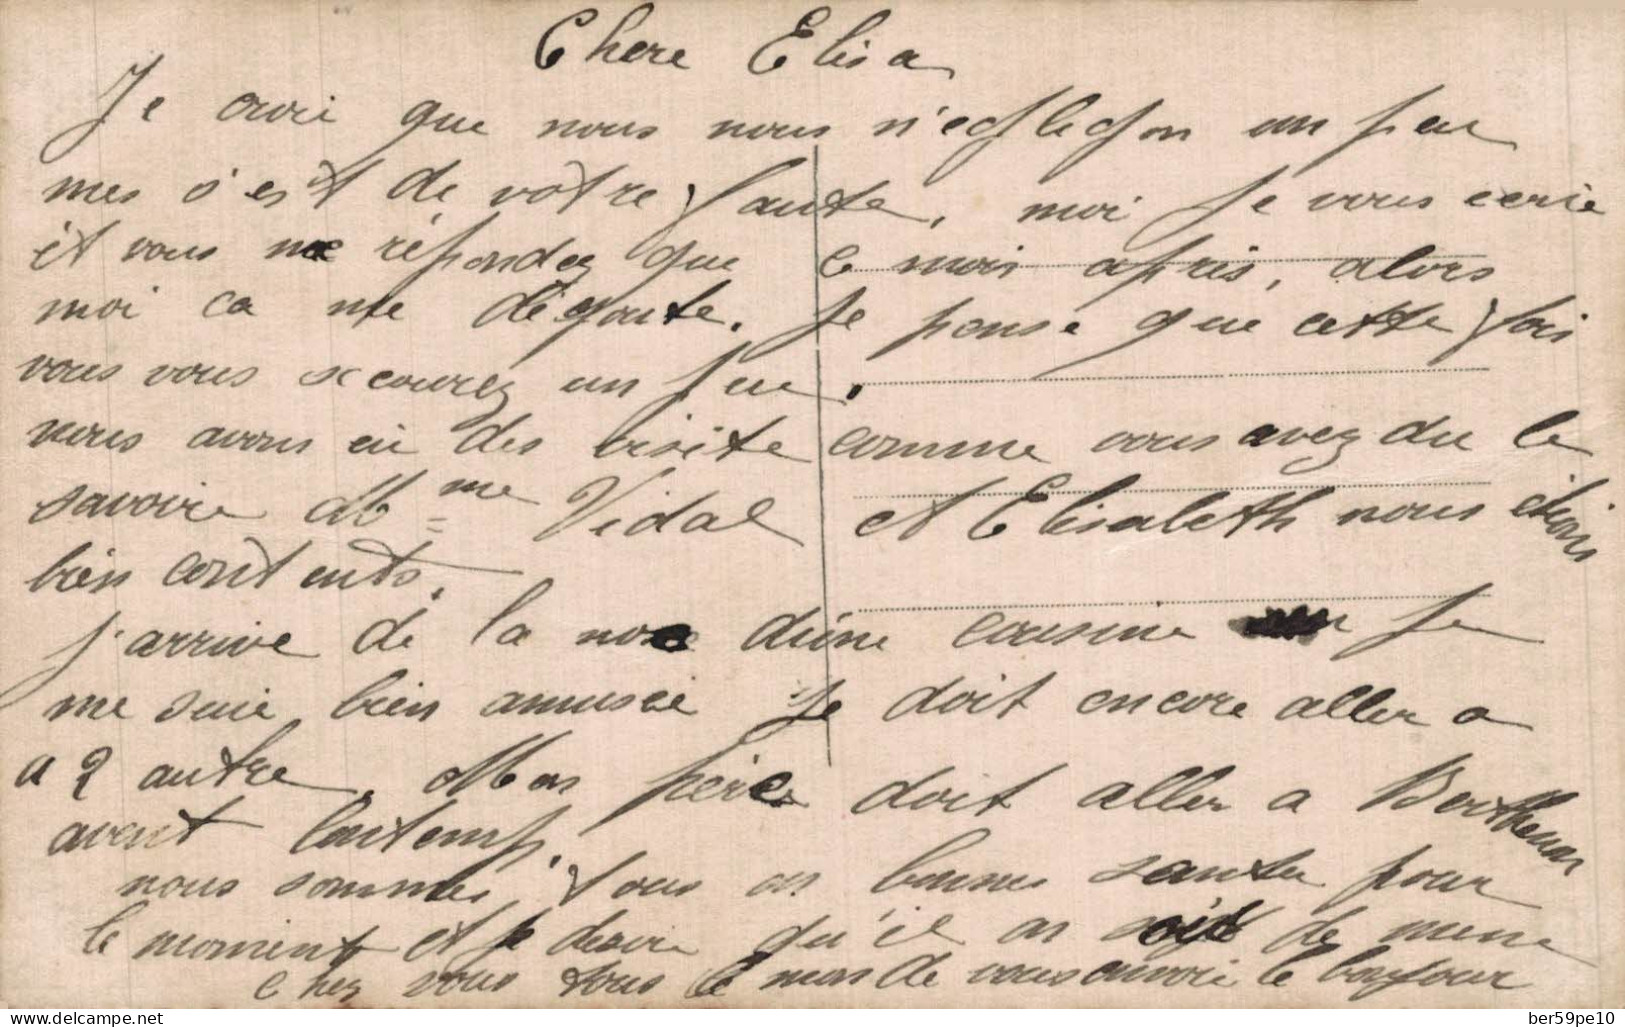 Chere Elisa
Je croi que nous nous n'eglegon un peu
mes s'est de votre faute, moi je vous ecrie
et vous me répondez que le mois après, alors
moi ca me dégoute. Je pense que cette fois
vous vous secourez un peu.
nous avons eu des visite comme vous avez du le
savoire Mme Vidal et Elisabeth nous étions
bien contents.
j'arrive de la noce d'une cousine je
me suie bien amusée Je doit encore aller a
a 2 autre. Mon père doit aller a Berthenon
avent lontemp.
nous sommes tous en bonnes santer pour
le moment et je desire qu'il en soit de meme
chez vous tous le mon de vous envoie le bonjour
© www.delcampe.net
ber59pe10